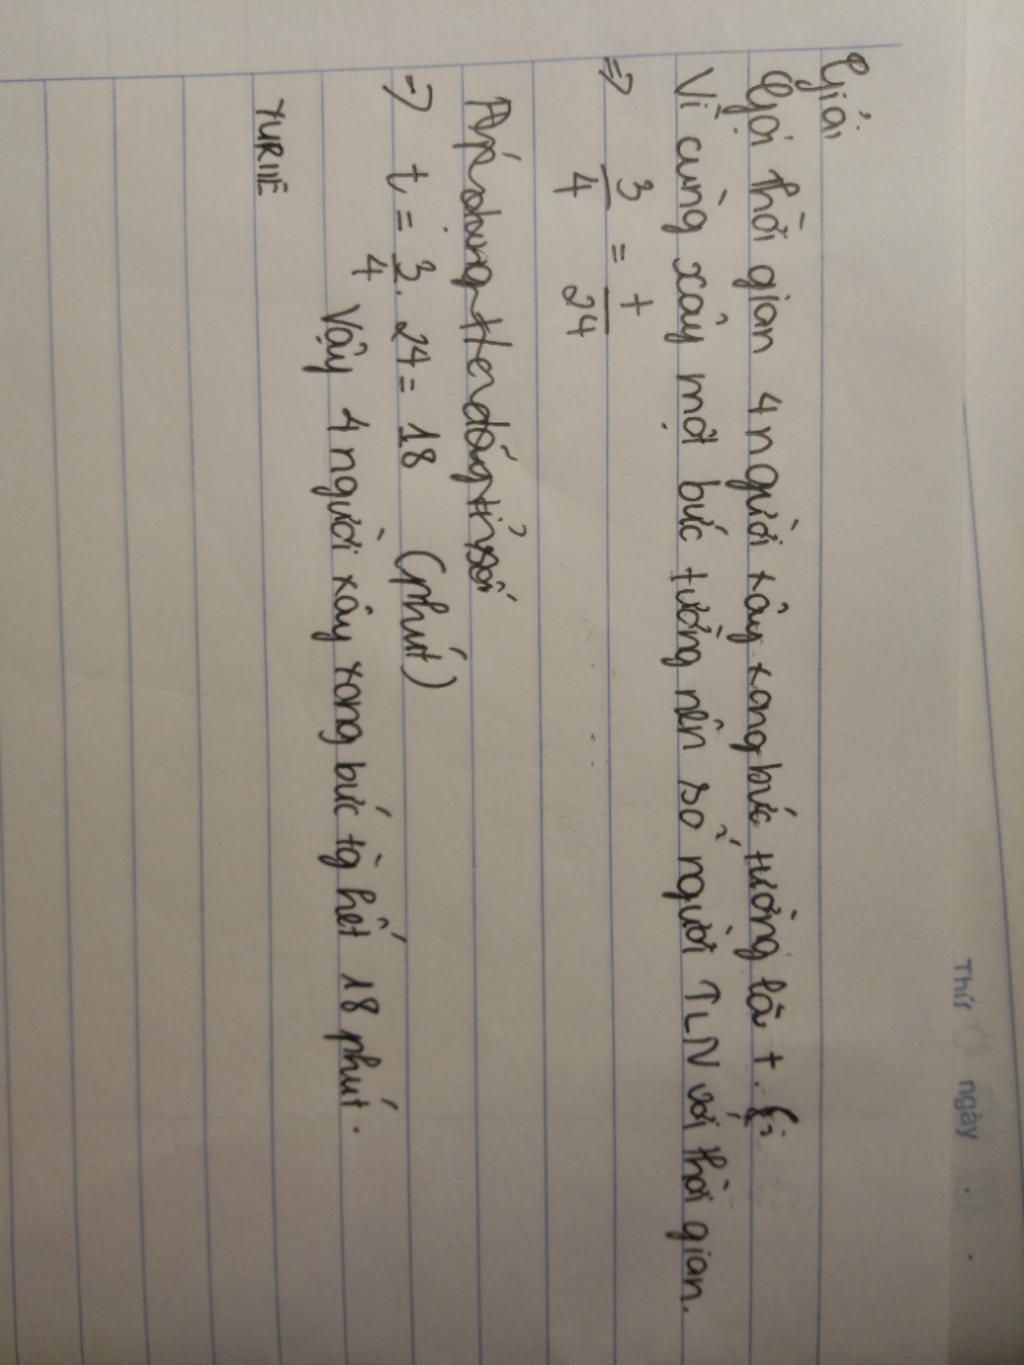 Thứ ngày
Giải
Gọi thời gian 4 người xây xong bức tường là t.
Vì cùng xây một bức tường nên số người TLN với thời gian.
=> 3/4 = t/24
Áp dụng
=> t = 3/4 . 24 = 18 (phút)
Vậy 4 người xây xong bức tg hết 18 phút.
YURIIE